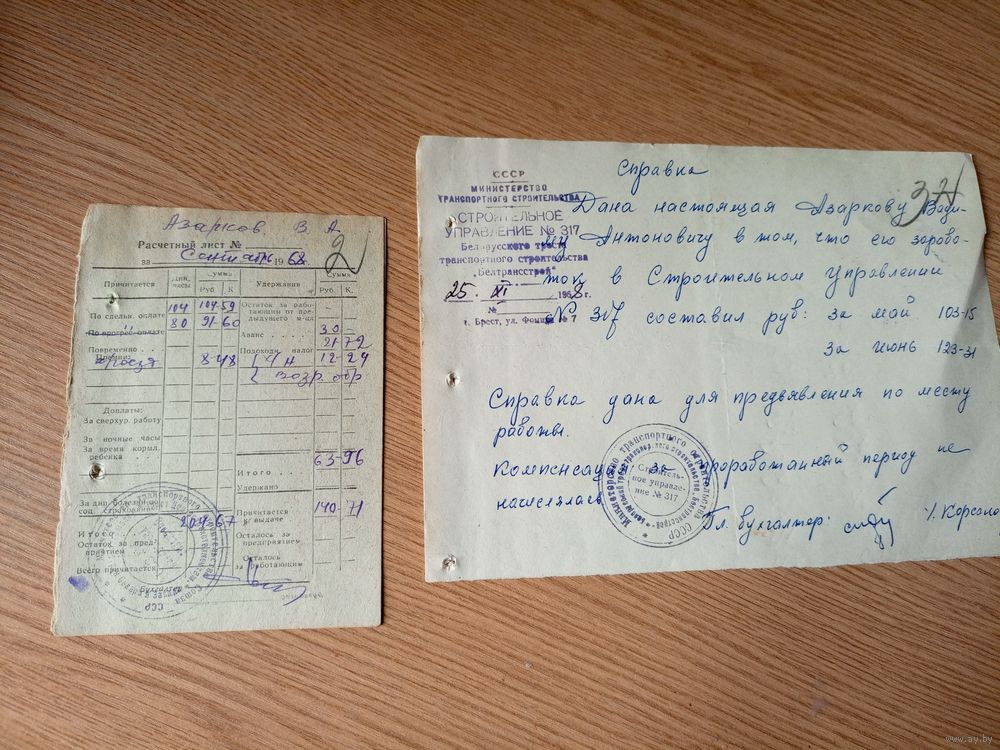 Азарков В А
Расчетный лист №
за Сентябрь 1968г.
2
Причитается Дни, часы Сумма Руб. К. Удержания Сумма Руб. К.
По сдельн. оплате 104 104-59 Остаток за работающим от предыдущего м-ца
По прогрес. оплате 80 91-60 Аванс 30
Повременно 21-72
Премия проезд 8-48 Подоходн. налог 12-24
Доплаты:
За сверхур. работу
За ночные часы
За время кормл. ребенка
Итого 63-96
Удержано
За дни болезни
204-67 Причитается к выдаче 140-71
Итого
Остаток за предприятием Осталось за предприятием
Всего причитается Осталось за работающим
Бухгалтер
СССР
МИНИСТЕРСТВО
ТРАНСПОРТНОГО СТРОИТЕЛЬСТВА
СТРОИТЕЛЬНОЕ
УПРАВЛЕНИЕ № 317
Белорусского треста
транспортного строительства
„Белтрансстрой"
25. XI 1968 г.
№
г. Брест, ул. Фомина № 7
Справка
32
Дана настоящая Азаркову
Антоновичу в том, что его зарабо-
ток в Строительном Управлении
№ 317 составил руб: за май 103-15
за июнь 123-31
Справка дана для предъявления по месту
работы.
Компенсация за проработанный период не
начислялась
Гл. бухгалтер:
Строитель-
ное управле-
ние № 317
СССР
www.ay.by